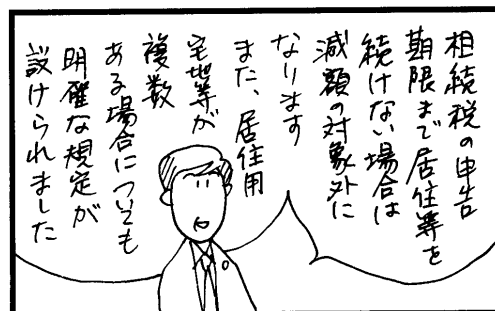 相続税の申告
期限まで居住等を
続けない場合は
減額の対象外に
なります
また、居住用
宅地等が
複数
ある場合についても
明確な規定が
設けられました